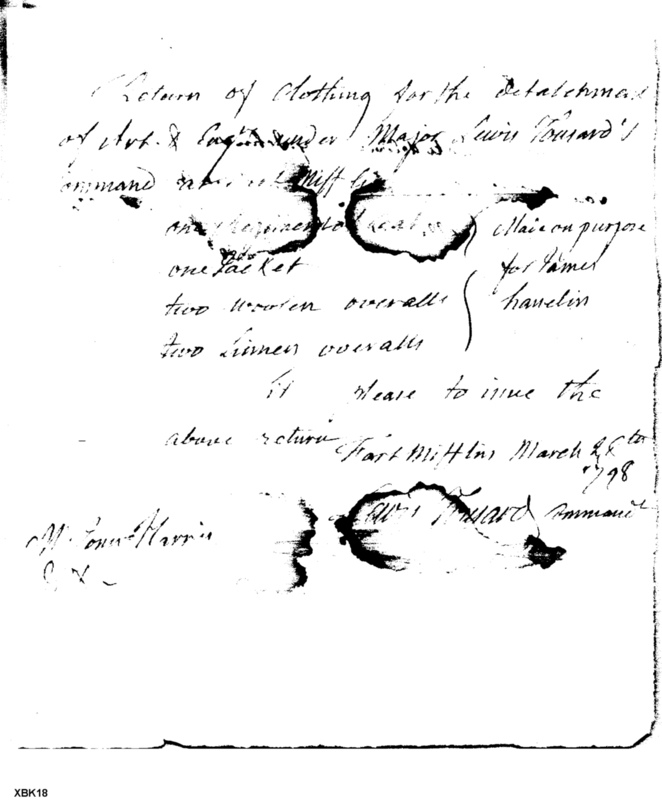 Return of Clothing for the detatchment
of Art. & Engin under Major Lewis Tousard's
Command Miff
one Regimental Coat
one Jacket
two woolen overalls
two Linnen overalls
Made on purpose
for James
hanelin
Sir please to issue the
above return
Fort Mifflin March 28th
1798
Lewis Tousard Command
Mr John Harris
XBK18